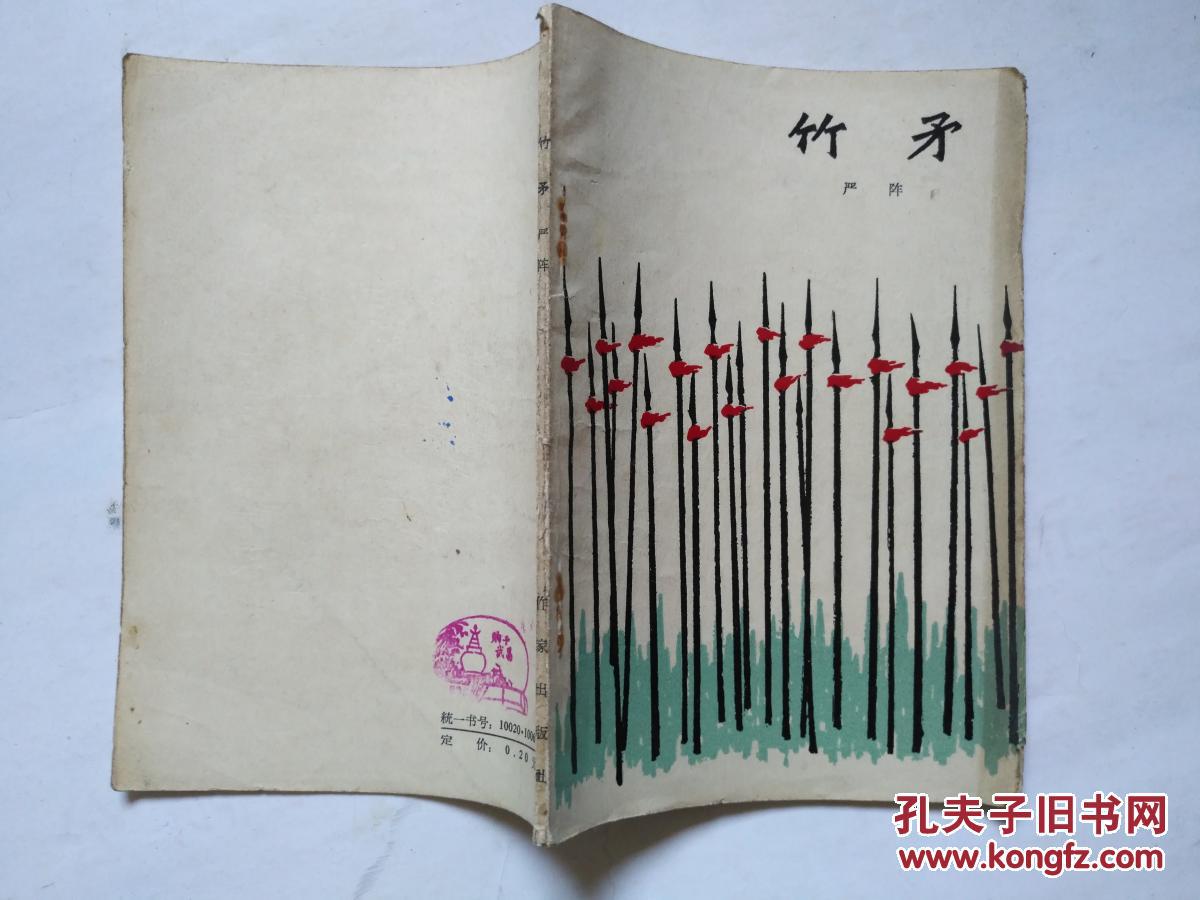 竹矛
严阵
竹矛 严阵 作家出版社
购于
武昌
統一书号：10020·100
定 价：0.20
孔夫子旧书网
www.kongfz.com